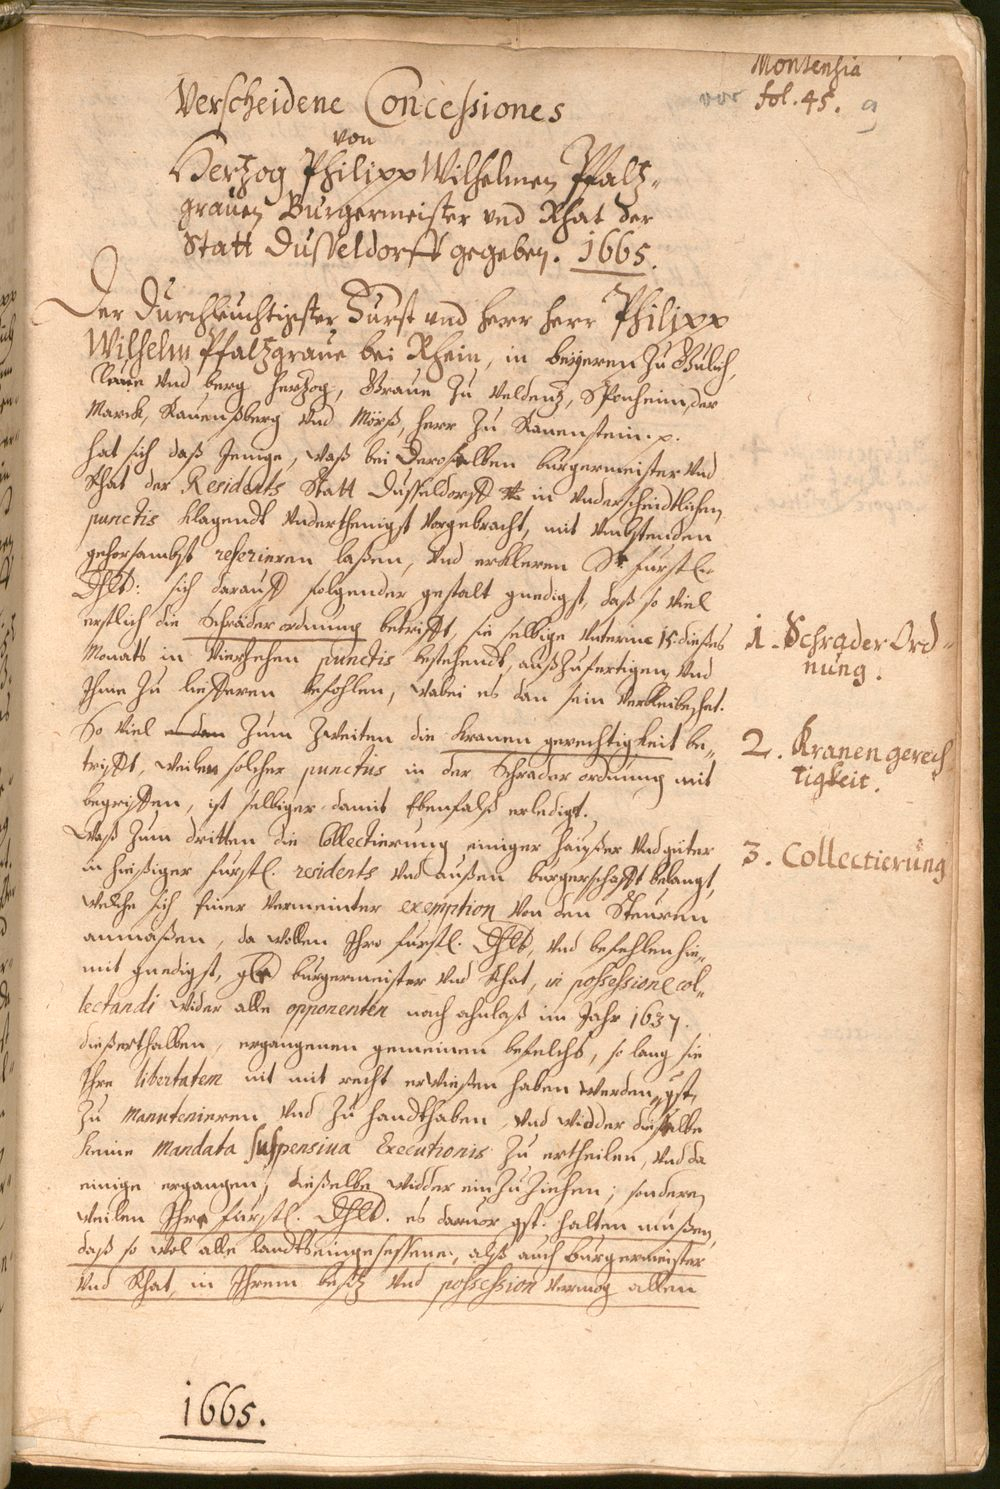 Montensia
vor fol. 45. 9
Verscheidene Concessiones
von
Hertzog Philipp Wilhelmen Pfaltz-
grauen Burgermeister vnd Rhat der
Statt Dusseldorff gegeben. 1665.
Der Durchleuchtigster Furst und herr herr Philipp
Wilhelm Pfaltzgraue bei Rhein, in beyeren zu Gulich,
Cleue vnd berg hertzog, Graue zu Veldentz, Sponheim, der
Marck, Rauenßberg vnd Mörß, herr zu Rauenstein. p.
hat sich daß Jenige, waß bei Deroselben burgermeister vnd
Rhat der Residents Statt Dusseldorff in vnderscheidtlichen
punctis klagendt vnderthenigst vorgebracht, mit vmbstenden
gehorsambst referieren laßen, vnd erkleren Sr furstl.
Dhlt: sich darauff folgender gestalt gnedigst, daß so viel
erstlich die Schräder ordnung betrifft, sie selbige 15 dießes
Monats in vierzehen punctis bestehendt, außzufertigen, vnd
Ihme zu liefferen befohlen, wabei es dan sein verbleibe hat.
So viel zum zweiten die kranen gerechtigkeit be-
trifft, weilen solcher punctus in der Schrader ordnung mit
begriffen, ist selbiger damit Ebenfalß erledigt.
Waß zum dritten die Collectierung einiger häußer vnd güter
in hießiger furstl. residents vnd außen burgerschafft belangt,
welche sich Einer vermeinter exemption von den Steuren
anmaßen, da wollen Ihro furstl. Dhlt, vnd befehlen hie-
mit gnedigst, burgermeister vnd Rhat, in possessione col-
lectandi wider alle opponenten nach ahnlaß im Jahr 1637.
dießerthalben, ergangenen gemeinen befelchs, so lang sie
Ihre libertatem nit mit recht erwießen haben werden, gst.
zu manutenieren, vnd zu handthaben, vnd widder dieselbe
keine mandata suspensiua Executionis zu ertheilen, vnd da
einige ergangen, dießelbe widder einzuziehen; sonderen
weilen Ihre furstl. Dhlt. es daruor gst. halten mußen,
daß so wol alle landtseingesessene, alß auch burgermeister
vnd Rhat, in Ihrem besitz vnd possession vermög allen
1. Schrader Ord-
nung.
2. Kranen gerech
tigkeit.
3. Collectierung
1665.